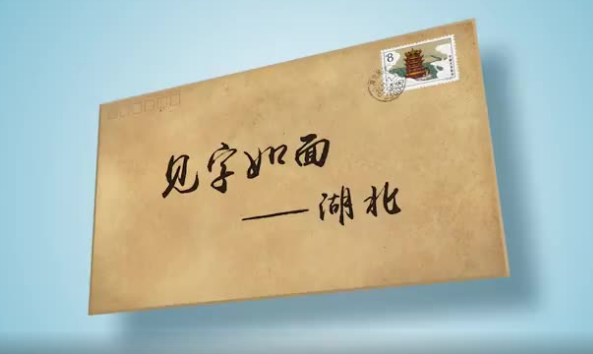 8
见字如面
——湖北